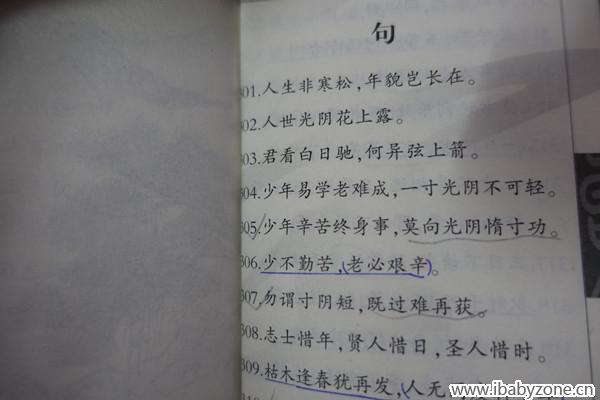 句
301.人生非寒松,年貌岂长在。
302.人世光阴花上露。
303.君看白日驰,何异弦上箭。
304.少年易学老难成,一寸光阴不可轻。
305.少年辛苦终身事,莫向光阴惰寸功。
306.少不勤苦,老必艰辛。
307.勿谓寸阴短,既过难再获。
308.志士惜年,贤人惜日,圣人惜时。
309.枯木逢春犹再发,人无
www.ibabyzone.cn